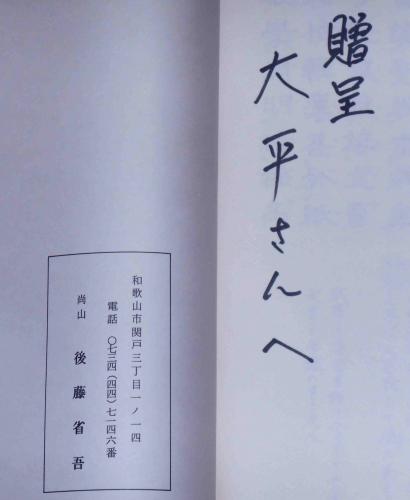 贈呈
大平さんへ
和歌山市関戸三丁目一ノ一四
電話 〇七三四(四四)七一四六番
尚山 後藤省吾